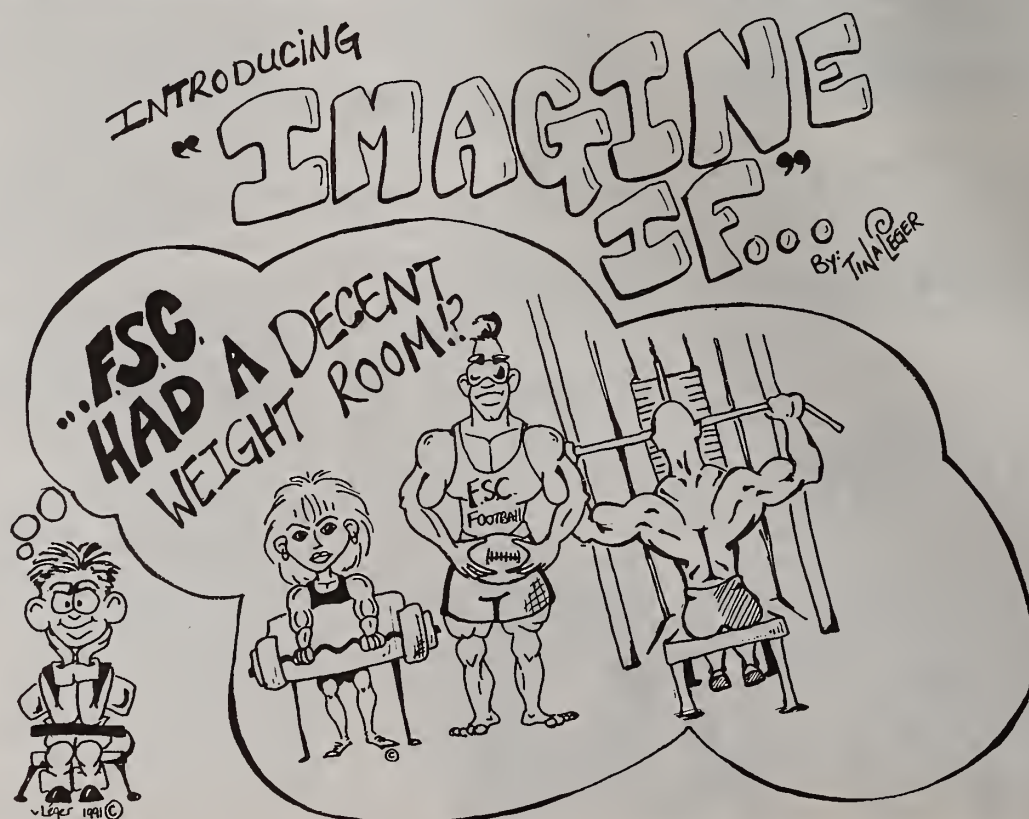 INTRODUCING
"IMAGINE
IF..."
BY: TINA LEGER
...F.S.C.
HAD A DECENT
WEIGHT ROOM!?
F.S.C.
FOOTBALL
©
Léger 1991 ©